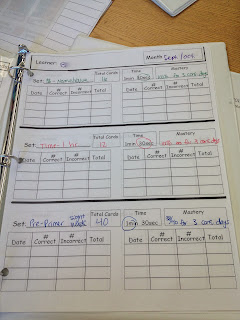 Learner:
Month: Sept
Set: Total Cards Time Mastery
1min 30sec for 3 cons. days
Date # Correct # Incorrect Total Date # Correct # Incorrect Total
Set: Time - 1 hr Total Cards 12 Time 1min 30sec Mastery
Date # Correct # Incorrect Total Date # Correct # Incorrect Total
Set: Pre-Primer sight words Total Cards 40 Time 1min 30sec Mastery for 3 cons. days
Date # Correct # Incorrect Total Date # Correct # Incorrect Total